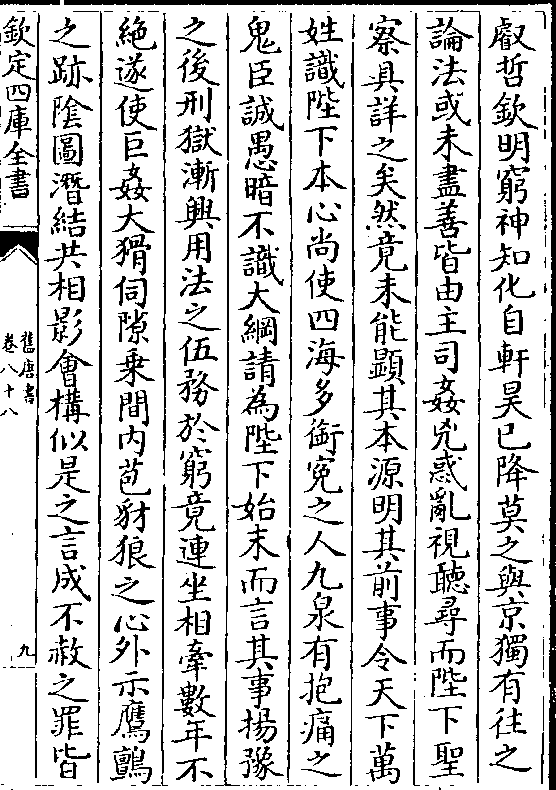 叡哲欽明窮神知化自軒昊已降莫之與京獨有往之
論法或未盡善皆由主司姦兇惑亂視聽尋而陛下聖
察具詳之矣然竟未能顯其本源明其前事令天下萬
姓識陛下本心尚使四海多銜寃之人九泉有抱痛之
鬼臣誠愚暗不識大綱請為陛下始末而言其事揚豫
之後刑獄漸興用法之伍務於窮竟連坐相牽數年不
絶遂使巨姦大猾伺隙乗間内苞豺狼之心外示鷹鸇
之跡陰圖潛結共相影會構似是之言成不赦之罪皆
欽定四庫全書
舊唐書
卷八十八
九